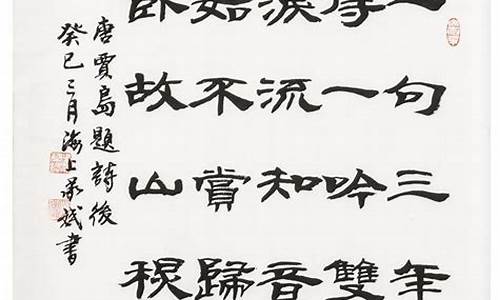 二句三年
得一吟雙
淚流知音
如不賞歸
臥故山
唐賈島題詩後
癸巳三月海上書